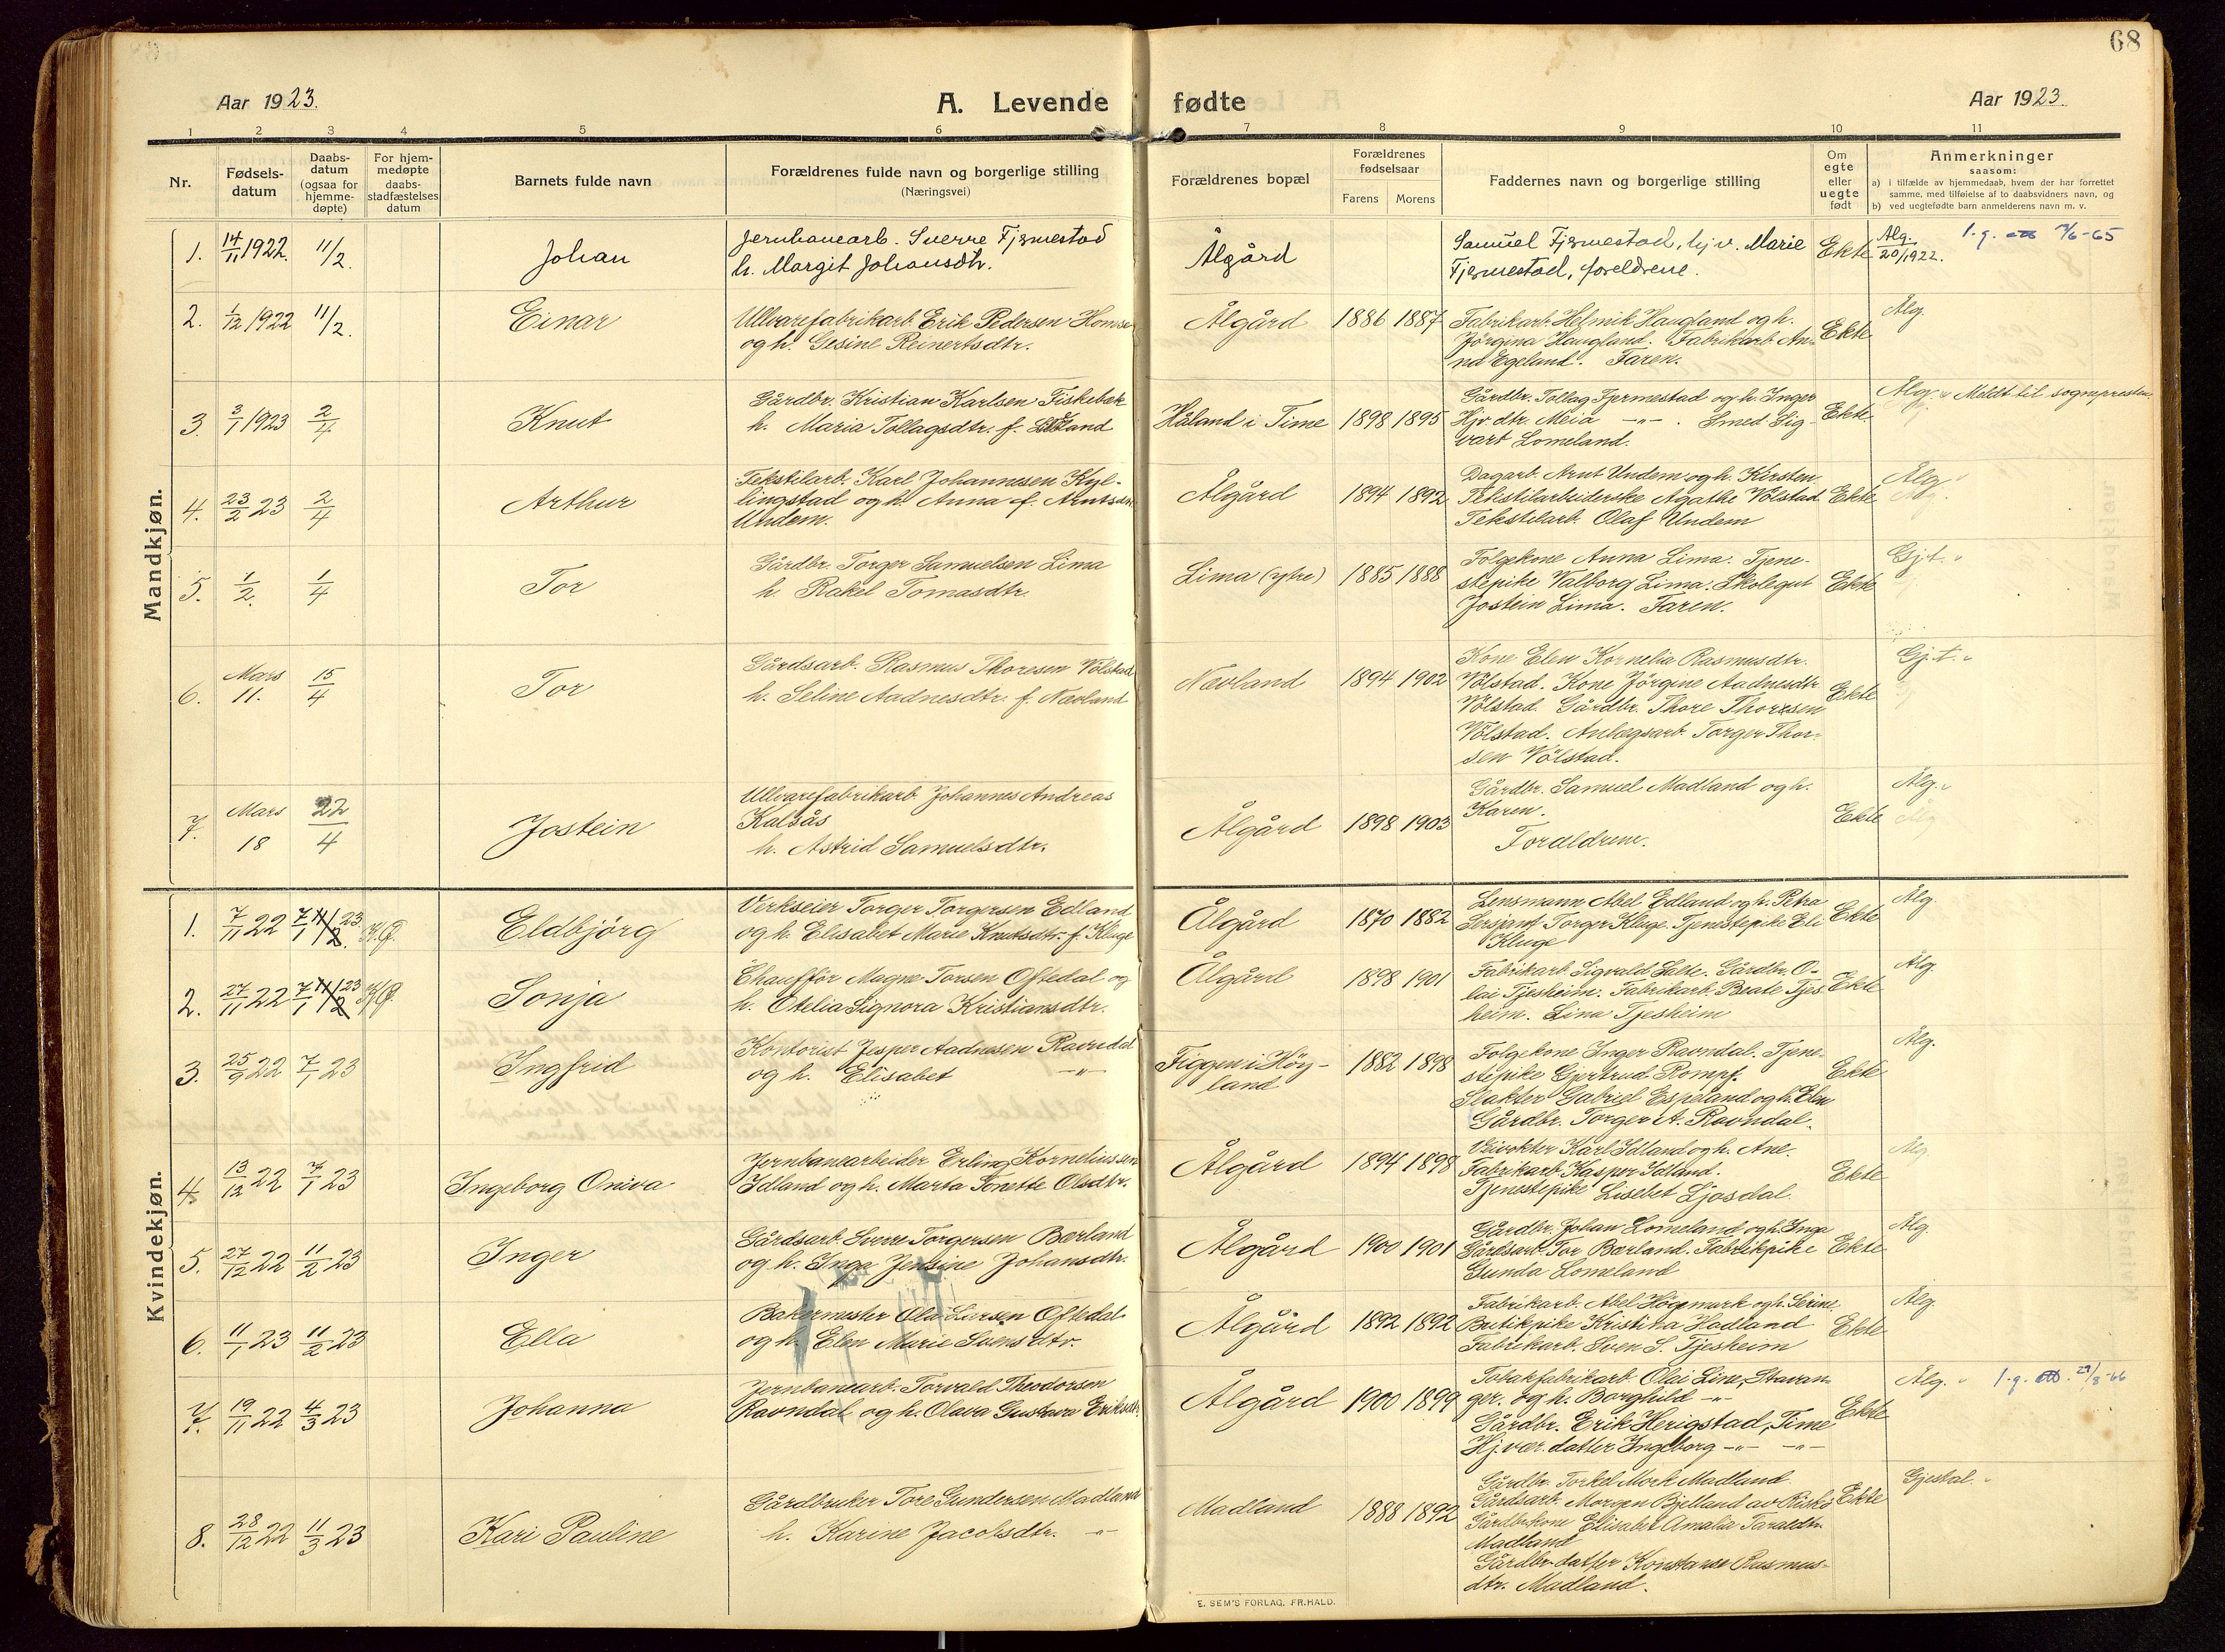 68
Aar 1923.
A. Levende fødte
Aar 1923.
1 2 3 4 5 6 7 8 9 10 11
Nr.
Fødsels-
datum
Daabs-
datum
(ogsaa for
hjemme-
døpte)
For hjem-
medøpte
daabs-
stadfæstelses
datum
Barnets fulde navn
Forældrenes fulde navn og borgerlige stilling
(Næringsvei)
Forældrenes bopæl
Forældrenes
fødselsaar
Farens Morens
Faddernes navn og borgerlige stilling
Om
egte
eller
uegte
født
Anmerkninger
saasom:
a) i tilfælde av hjemmedaab, hvem der har forrettet
samme, med tilføielse af to daabsvidners navn, og
b) ved uegtefødte barn anmelderens navn m. v.
Mandkjøn.
1. 14/11 1922. 11/2. Johan
Jernbanearb. Sverre Fjermestad
h. Margit Johansdtr.
Ålgård
Samuel Fjermestad, hj.v. Marie
Fjermestad, foreldrene.
Ekte
Alg.
20/1922.
1.g. 7/6-65
2. 1/12 1922 11/2. Einar
Ullvarefabrikarb. Erik Pedersen
og h. Gesine Reinertsdtr.
Ålgård 1886 1887
Fabrikarb. Helmik Haugland og h.
Jörgina Haugland. Fabrikarb. An-
na Egeland. Faren.
Ekte
Alg.
3. 3/1 1923 2/4 Knut
Gårdbr. Kristian Karlsen Fiskebæk
h. Maria Tollagsdtr. f.
Håland i Time 1898 1895
Gårdbr. Tollag Fjermestad og h. Inger
Hjv. dtr. Meia -"-. Smed Sig-
vart Lomeland.
Ekte
Alg. Meldt til sognepresten
4. 23/2 23 2/4 Arthur
Tekstilarb. Karl Johannesen Kyl-
lingstad og h. Anna f. Arntsdtr.
Undem.
Ålgård 1894 1892
Dagarb. Arnt Undem og h. Kirsten
Tekstilarbeiderske Agathe Völstad
Tekstilarb. Olaf Undem
Ekte
Alg.
5. 1/2. 1/4 Tor
Gårdbr. Torger Samuelsen Lima
h. Rakel Tomasdtr.
Lima (ytre) 1885 1888
Folgekone Anna Lima. Tjene-
stepike Valborg Lima. Skolegut
Jostein Lima. Faren.
Ekte
Gj.t.
6. Mars 11. 15/4 Tor
Gårdsarb. Rasmus Thoresen Völstad
h. Seline Aadnesdtr. f. Nævland
Nevland 1894 1902
Kone Elen Kornelia Rasmusdtr.
Völstad. Kone Jörgine Aadnesdtr.
Völstad. Gårdbr. Thore Thoresen
Völstad. Anlægsarb. Torger Thor-
sen Völstad.
Ekte
Gj.t.
7. Mars 18 22/4 Jostein
Ullvarefabrikarb. Johannes Andreas
Kalsås
h. Astrid Samuelsdtr.
Ålgård 1898 1903
Gårdbr. Samuel Madland og h.
Karen.
Foraldrene.
Ekte
Alg.
Kvindekjøn.
1. 7/11 22 7/1 23 Eldbjörg
Verkseier Torger Torgersen Edland
og h. Elisabet Marie Knutsdtr. f. Kluge
Ålgård 1870 1882
Lensmann Abel Edland og h. Petra
Sersjant Torger Kluge. Tjenestepike Eli
Kluge
Ekte
Alg.
2. 27/11 22 7/1 23 Sonja
Chaufför Magne Torsen Oftedal og
h. Otelia Signora Kristiansdtr.
Ålgård 1898 1901
Fabrikarb. Sigvald Salte. Gårdbr. O-
lai Tjesheim. Fabrikarb. Beate Tjes-
heim. Lina Tjesheim
Ekte
Alg.
3. 25/9 22 7/1 23 Ingfrid
Kontorist Jesper Aadnesen Ravndal
og h. Elisabet -"-
Figgen i Höy-
land
1882 1898
Folgekone Inger Ravndal. Tjene-
stepike Gjertrud Rompf.
Slakter Gabriel Espeland og h. Elen
Gårdbr. Torger A. Ravndal.
Ekte
Alg.
4. 13/12 22 7/1 23 Ingeborg Oniva
Jernbanearbeider Erling Korneliussen
Idland og h. Marta Tonette Olsdtr.
Ålgård 1894 1898
Veivokter Karl Idland og h. Ane.
Fabrikarb. Kasper Idland.
Tjenestepike Lisebet Ljosdal.
Ekte
Alg.
5. 27/12 22 11/2 23 Inger
Gårdsarb. Sverre Torgersen Bærland
og h. Inga Jensine Johansdtr.
Ålgård 1900 1901
Gårdbr. Johan Lomeland og h. Inga
Gårdsarb. Tor Bærland. Fabrikpike
Gunda Lomeland
Ekte
Alg.
6. 11/1 23 11/2 23 Ella
Bakermester Ola Larsen Oftedal
og h. Elen Marie Svensdtr.
Ålgård 1892 1892
Fabrikarb. Abel Högemark og h. Serine
Butikpike Kristina Hadland
Fabrikarb. Sven S. Tjesheim
Ekte
Alg.
7. 19/11 22 4/3 23 Johanna
Jernbanearb. Torvald Theodorsen
Ravndal og h. Olava Gustava Eriksdtr.
Ålgård 1900 1899
Tobakfabrikarb. Olai Line, Stavan-
ger. og h. Borghild -"-
Gårdbr. Erik Herigstad, Time
Hj.vær. datter Ingeborg -"- -"-
Ekte
Alg. 1.g. 29/8-66
8. 28/12 22 11/3 23 Kari Pauline
Gårdbruker Tore Gundersen Madland
h. Karine Jacobsdtr. -"-
Madland 1888 1892
Gårdbr. Torkel Mork Madland
Gårdsarb. Morgen Bjelland av
Gårdbrkone Elisabet Amalia Taraldtr.
Madland
Gårdbr datter Konstanse Rasmus-
dtr. Madland.
Ekte
Gjestal
E. SEM'S FORLAG, FR.HALD.